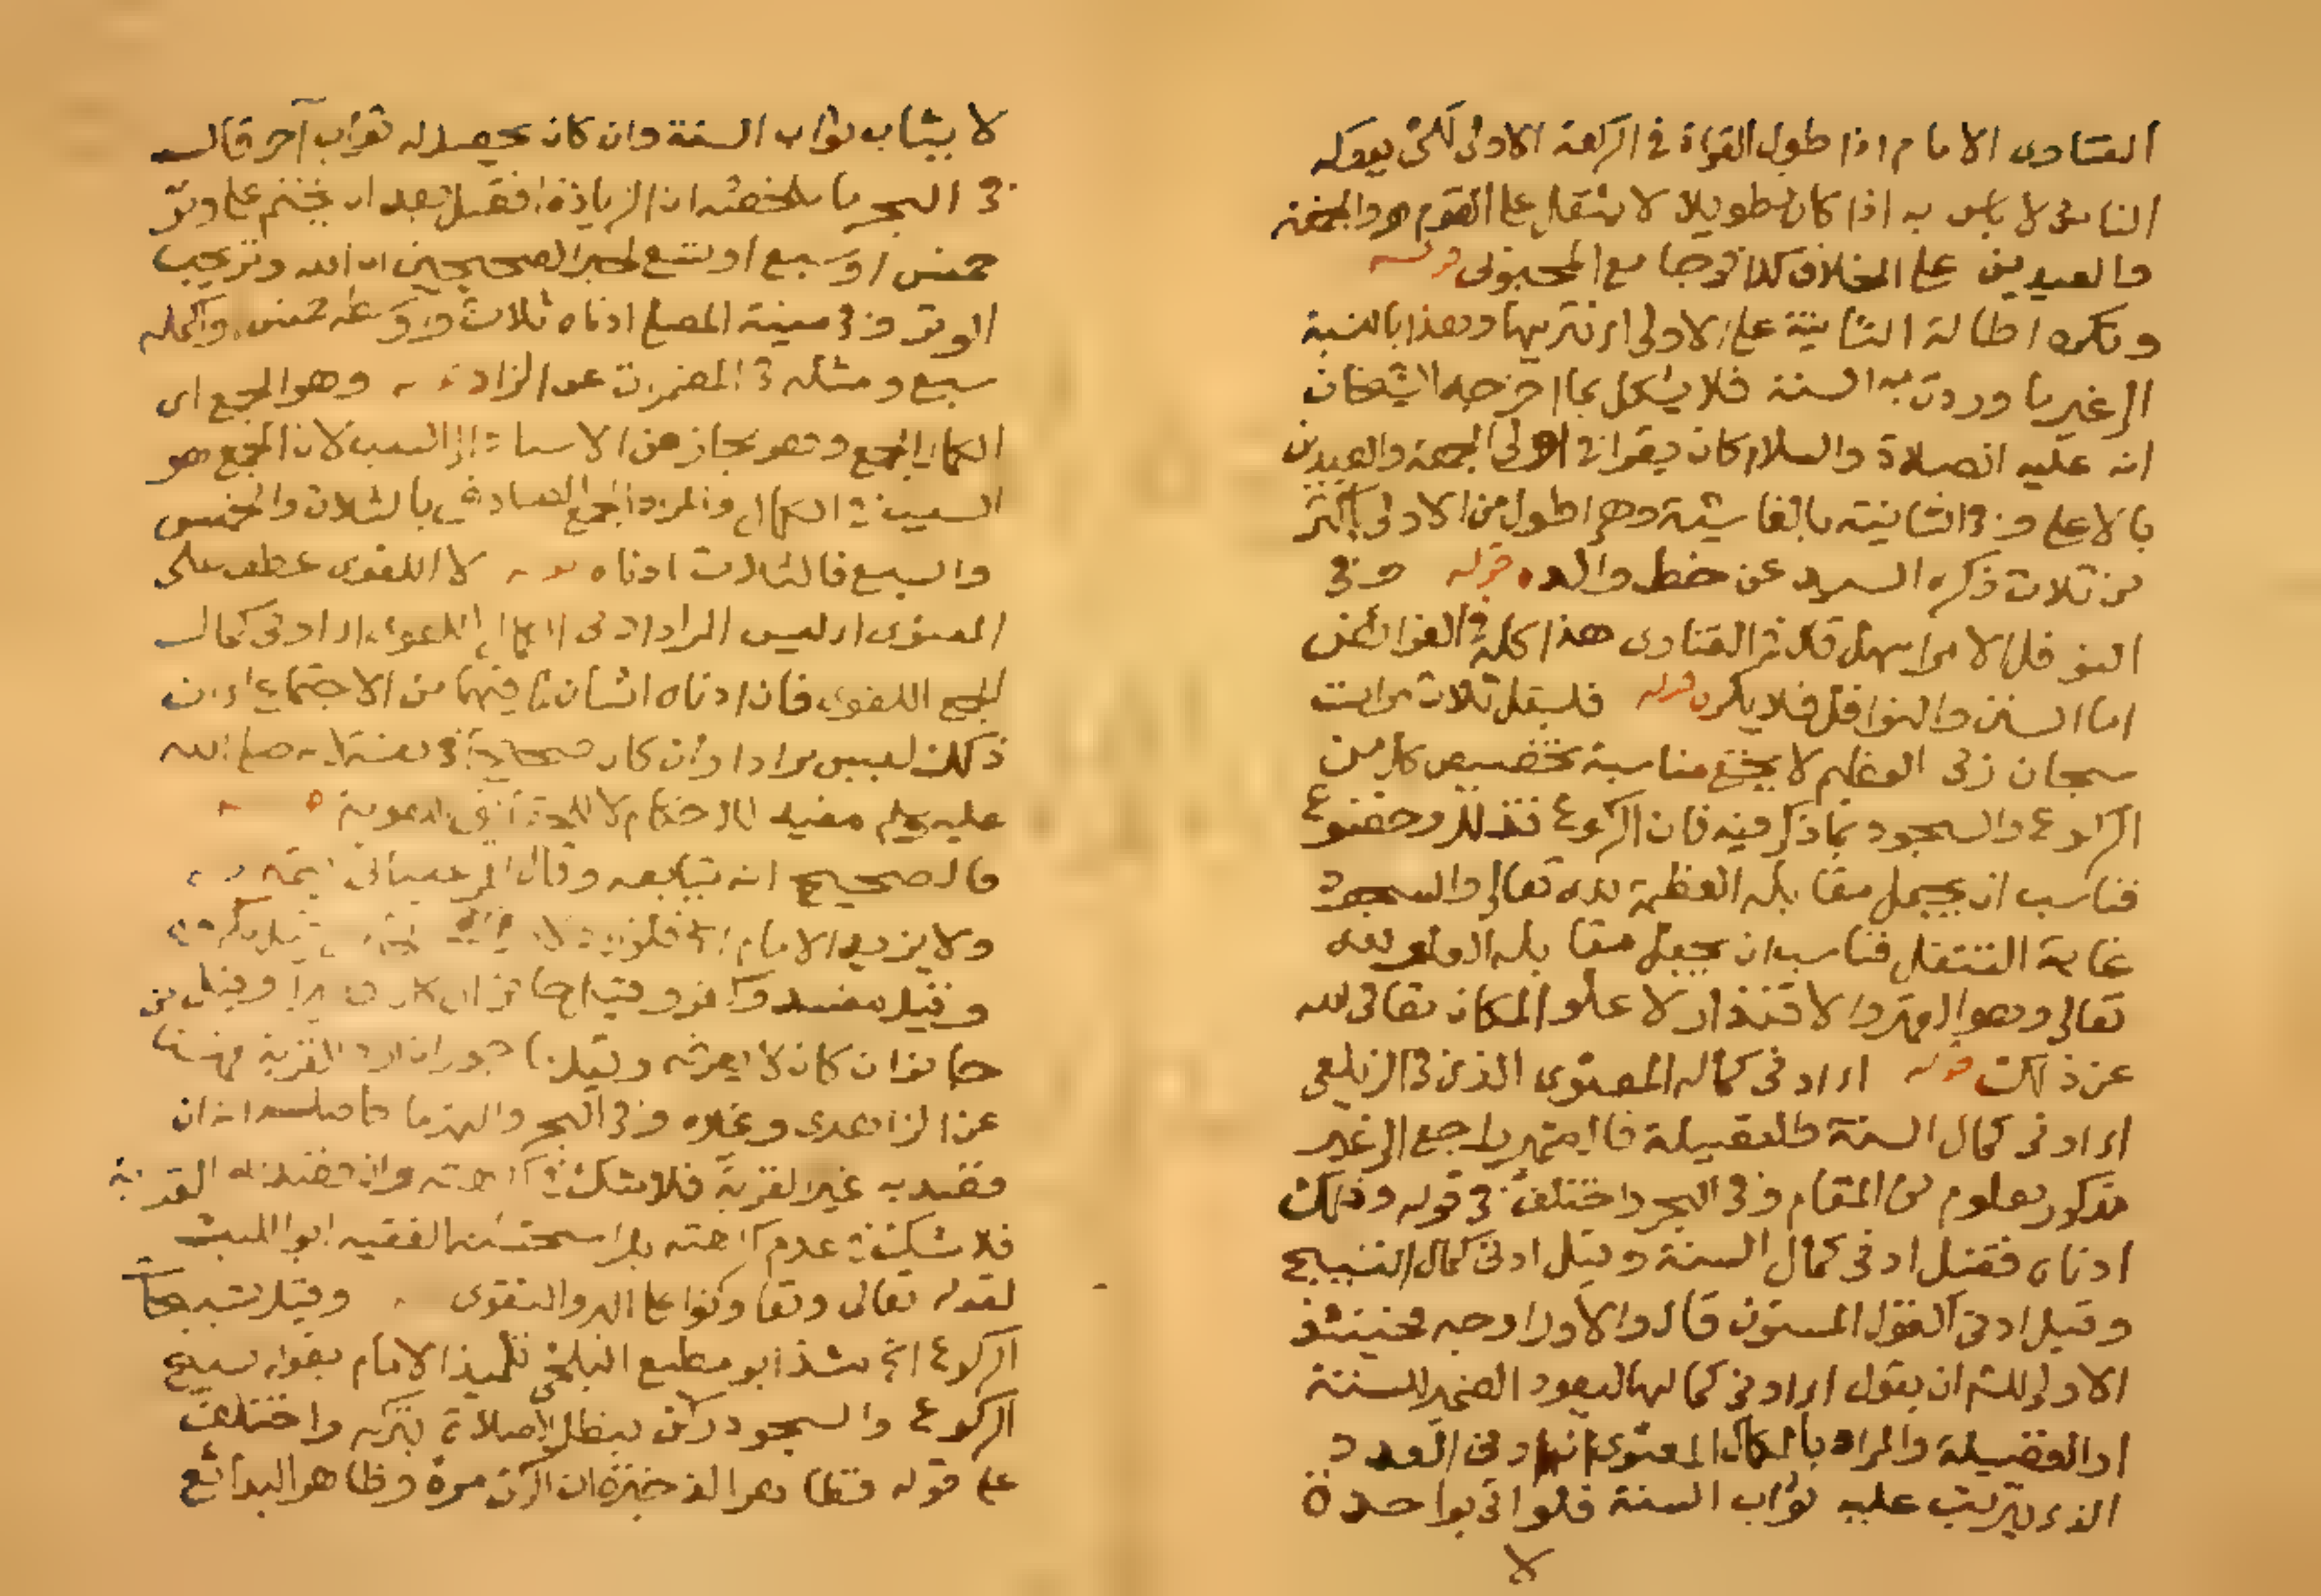 الفتاوى الامام اذا طول القراة في الركعة الاولى لكى يدركه
الناس لا باس به اذا كان تطويلا لا يثقل على القوم والجمعة
والعيدين على الخلاف كذا في جامع المحبوبى قوله
ويكره اطالة الثانية على الاولى اى تنزيها وهذا بالنسبة
الى غير ما وردت به السنة فلا يشكل بما اخرجه الشيخان
انه عليه الصلاة والسلام كان يقرا في اولى الجمعة والعيدين
بالاعلى وفى الثانية بالغاشية وهى اطول من الاولى باكثر
من ثلاث ذكره السيد عن خط والده قوله وفى
النوفل الامر اسهل قال في الفتاوى هذا كله في الفرائض
اما السنن والنوافل فلا يكره قوله فليقل ثلاث مرات
سبحان ربى العظيم لا يخفى مناسبة تخصيص كل من
الركوع والسجود بما ذكر فيه فان الركوع تذلل وخضوع
فناسب ان يجعل مقابله العظمة لله تعالى والسجود
غاية التسفل فناسب ان يجعل مقابله العلو لله
تعالى وهو القهر والاقتدار لا علو المكان تعالى الله
عن ذلك قوله اى ادنى كماله المعنوى الذى فى الزيلعى
اى ادنى كمال السنة والفضيلة فالضمير راجع الى غير
مذكور معلوم من المقام وفى البحر واختلف فى قوله وذلك
ادناه فقيل ادنى كمال السنة وقيل ادنى كمال التسبيح
وقيل ادنى القول المسنون قال والاول اوجه فحينئذ
الاولى للش ان يقول اى ادنى كمالها ليعود الضمير للسنة
او الفضيلة والمراد بالكمال المعنوى انه ادنى العدد
الذى يترتب عليه ثواب السنة فلو اتى بواحدة
لا
لا يثاب ثواب السنة وان كان يحصل له ثواب آخر قال
فى البحر ما ملخصه ان الزيادة افضل بعد ان يختم على وتر
خمس او سبع او تسع لخبر الصحيحين ان الله وتر يحب
الوتر وفى منية المصلى ادناه ثلاث واوسطه خمس واكمله
سبع ومثله فى المضمرات عن الزاد وهو الجمع اى
الكمال الجمع وهو مجاز من الاسناد الى السبب لان الجمع هو
السبب فى الكمال والمراد الجمع الصادق بالثلاث والخمس
والسبع فالثلاث ادناه قوله لا اللغوى عطف على
المعنوى اى ليس المراد ادنى الكمال اللغوى اى ادنى كمال
الجمع اللغوى فان ادناه اثنان لما فيهما من الاجتماع اى ان
ذلك ليس مرادا وان كان صحيحا فى نفسه لانه صلى الله
عليه وسلم مفيد للاحكام لا للحقائق اللغوية
فالصحيح انه يتابعه وقال المرغينانى يتمه
ولا يزيد الامام الخ فلو
وقيل مفسد وكفر وقيل جائز ان كان فقيرا وقيل
جائز ان كان لا يعرفه وقيل ماجور ان اراد القربة قهستانى
عن الزاهدى وغيره وفى البحر والنهر ما حاصله انه ان
قصد به غير القربة فلا شك فى كراهته وان قصد به القربة
فلا شك فى عدم كراهته بل استحسنه الفقيه ابو الليث
لقوله تعالى وتعاونوا على البر والتقوى وقيل تسبيحات
الركوع الخ شذ ابو مطيع البلخى تلميذ الامام بقوله تسبيح
الركوع والسجود ركن يبطل الصلاة بتركه واختلف
على قوله فقط هو الذخيرة ان الركن مرة وظاهر البدائع